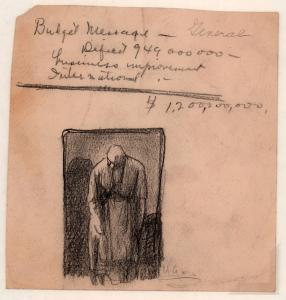 Budget Message — General
Deficit 949 000 000 —
business improvement
International "
$ 1,200,000,000,